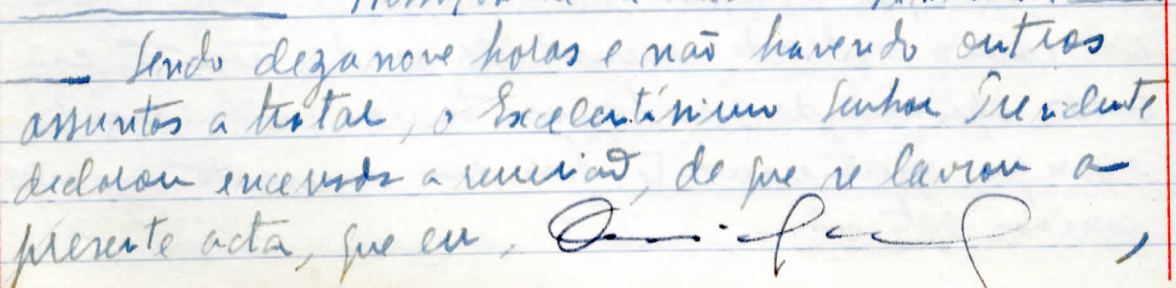 Sendo dezanove horas e não havendo outros
assuntos a tratar, o Excelentíssimo Senhor Presidente
declarou encerrada a reunião, de que se lavrou a
presente acta, que eu, ,